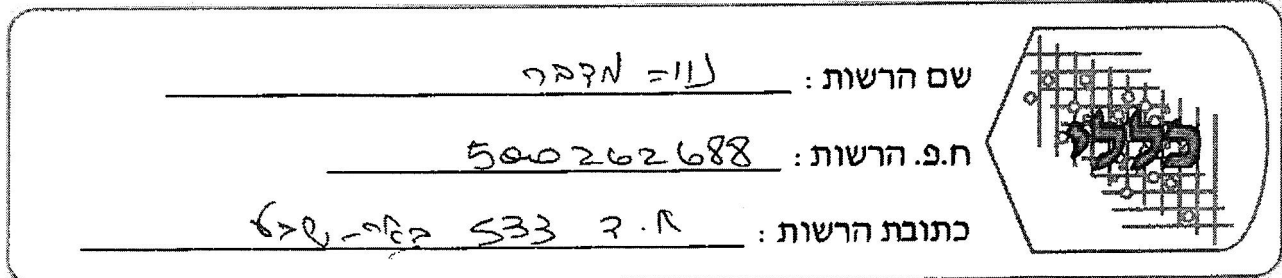 שם הרשות : נווה מדבר
ח.פ. הרשות : 500262688
כתובת הרשות : ת.ד 533 באר-שבע
כללי